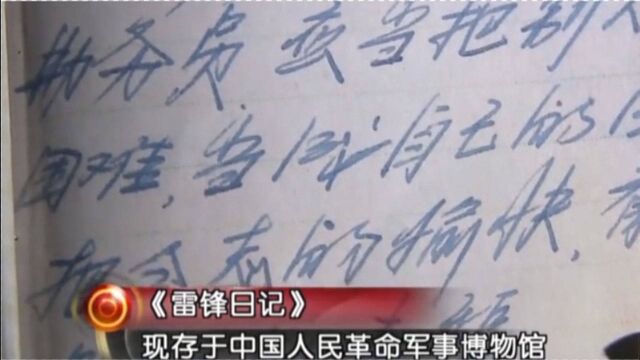 勤务员 应当把别人
困难,当成自己的
把同志的愉快,
《雷锋日记》
现存于中国人民革命军事博物馆